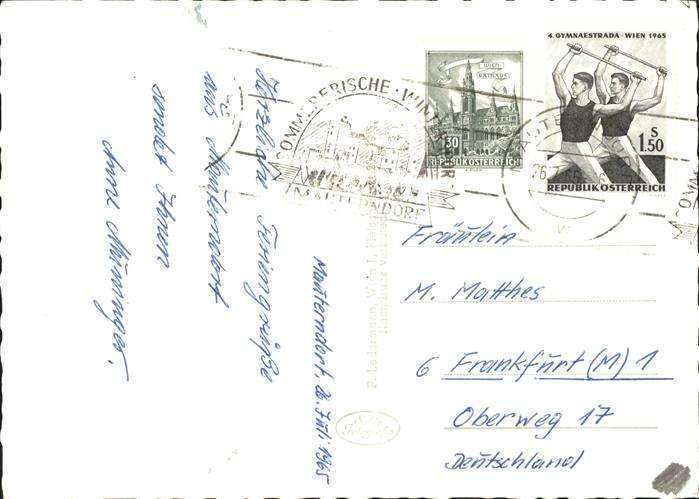 Mauterndorf, 26. Juli 1965
Herzliche Feriengrüße
aus Mauterndorf
sendet Ihnen
WIEN
RATHAUS
30
REPUBLIK ÖSTERREICH
4. GYMNAESTRADA · WIEN 1965
S
1.50
REPUBLIK ÖSTERREICH
SOMMERFRISCHE · WINTER
MAUTERNDORF
Fräulein
M. Matthes
6 Frankfurt (M) 1
Oberweg 17
Deutschland
P. Ledermann, Wien I,